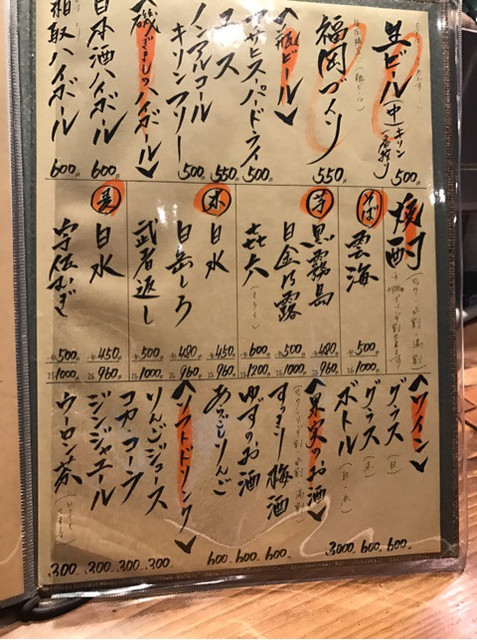 生ビール(中)キリン一番搾り 500
福岡づくり 550
〈瓶ビール〉
アサヒスーパードライ 500
550
ノンアルコール
キリンフリー 500
ハイボール〉
日本酒ハイボール 600
相取ハイボール 600
焼酎
そば 雲海 500 1000
芋 黒霧島 480 960
日金乃露 500 1200
㐂六 600 1000
米 白水 450 960
白岳しろ 480 960
武者返し 500 1000
麦 白水 450 960
宇佐むぎ 500 1000
〈ワイン〉
グラス(白) 600
グラス(赤) 600
ボトル(白・赤) 3000
〈果実のお酒〉
すっきり梅酒 600
ゆずのお酒 600
あらごしりんご 600
〈ソフトドリンク〉
りんごジュース 300
コカ・コーラ 300
ジンジャエール 300
ウーロン茶 300